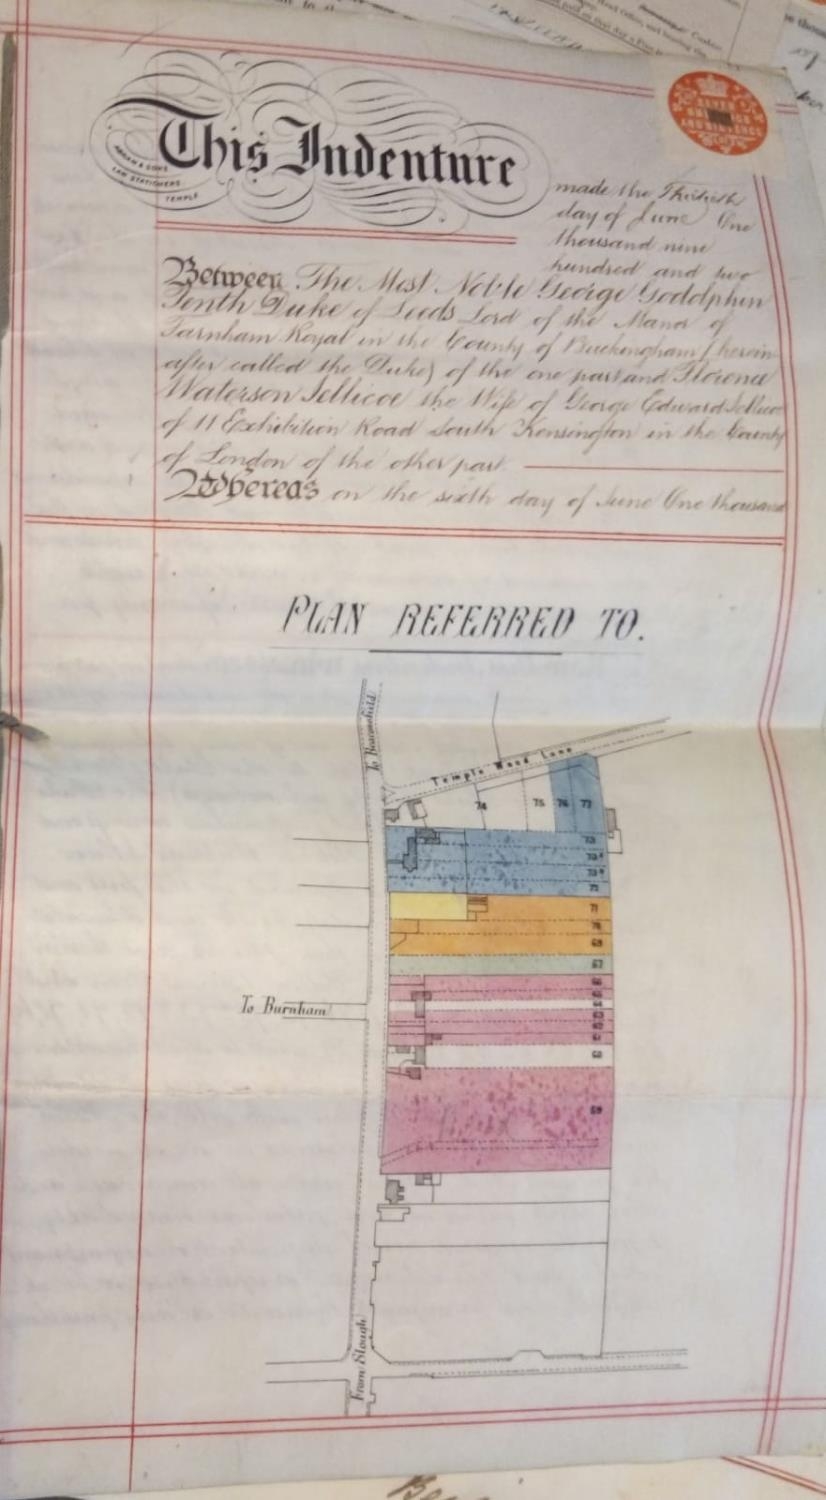 This Indenture
ABRAM & SONS
LAW STATIONERS
TEMPLE
made the Thirtieth
day of June One
thousand nine
hundred and two
Between The Most Noble George Godolphin
Tenth Duke of Leeds Lord of the Manor of
Farnham Royal in the County of Buckingham (herein
after called the Duke) of the one part and Florence
Waterson Jellicoe the Wife of George Edward Jellicoe
of 11 Exhibition Road South Kensington in the County
of London of the other part
Whereas on the sixth day of June One thousand
PLAN REFERRED TO.
To Beaconsfield
Temple Wood Lane
74
75
76
77
73
72
71
70
69
67
66
65
64
63
62
61
60
To Burnham
59
From Slough